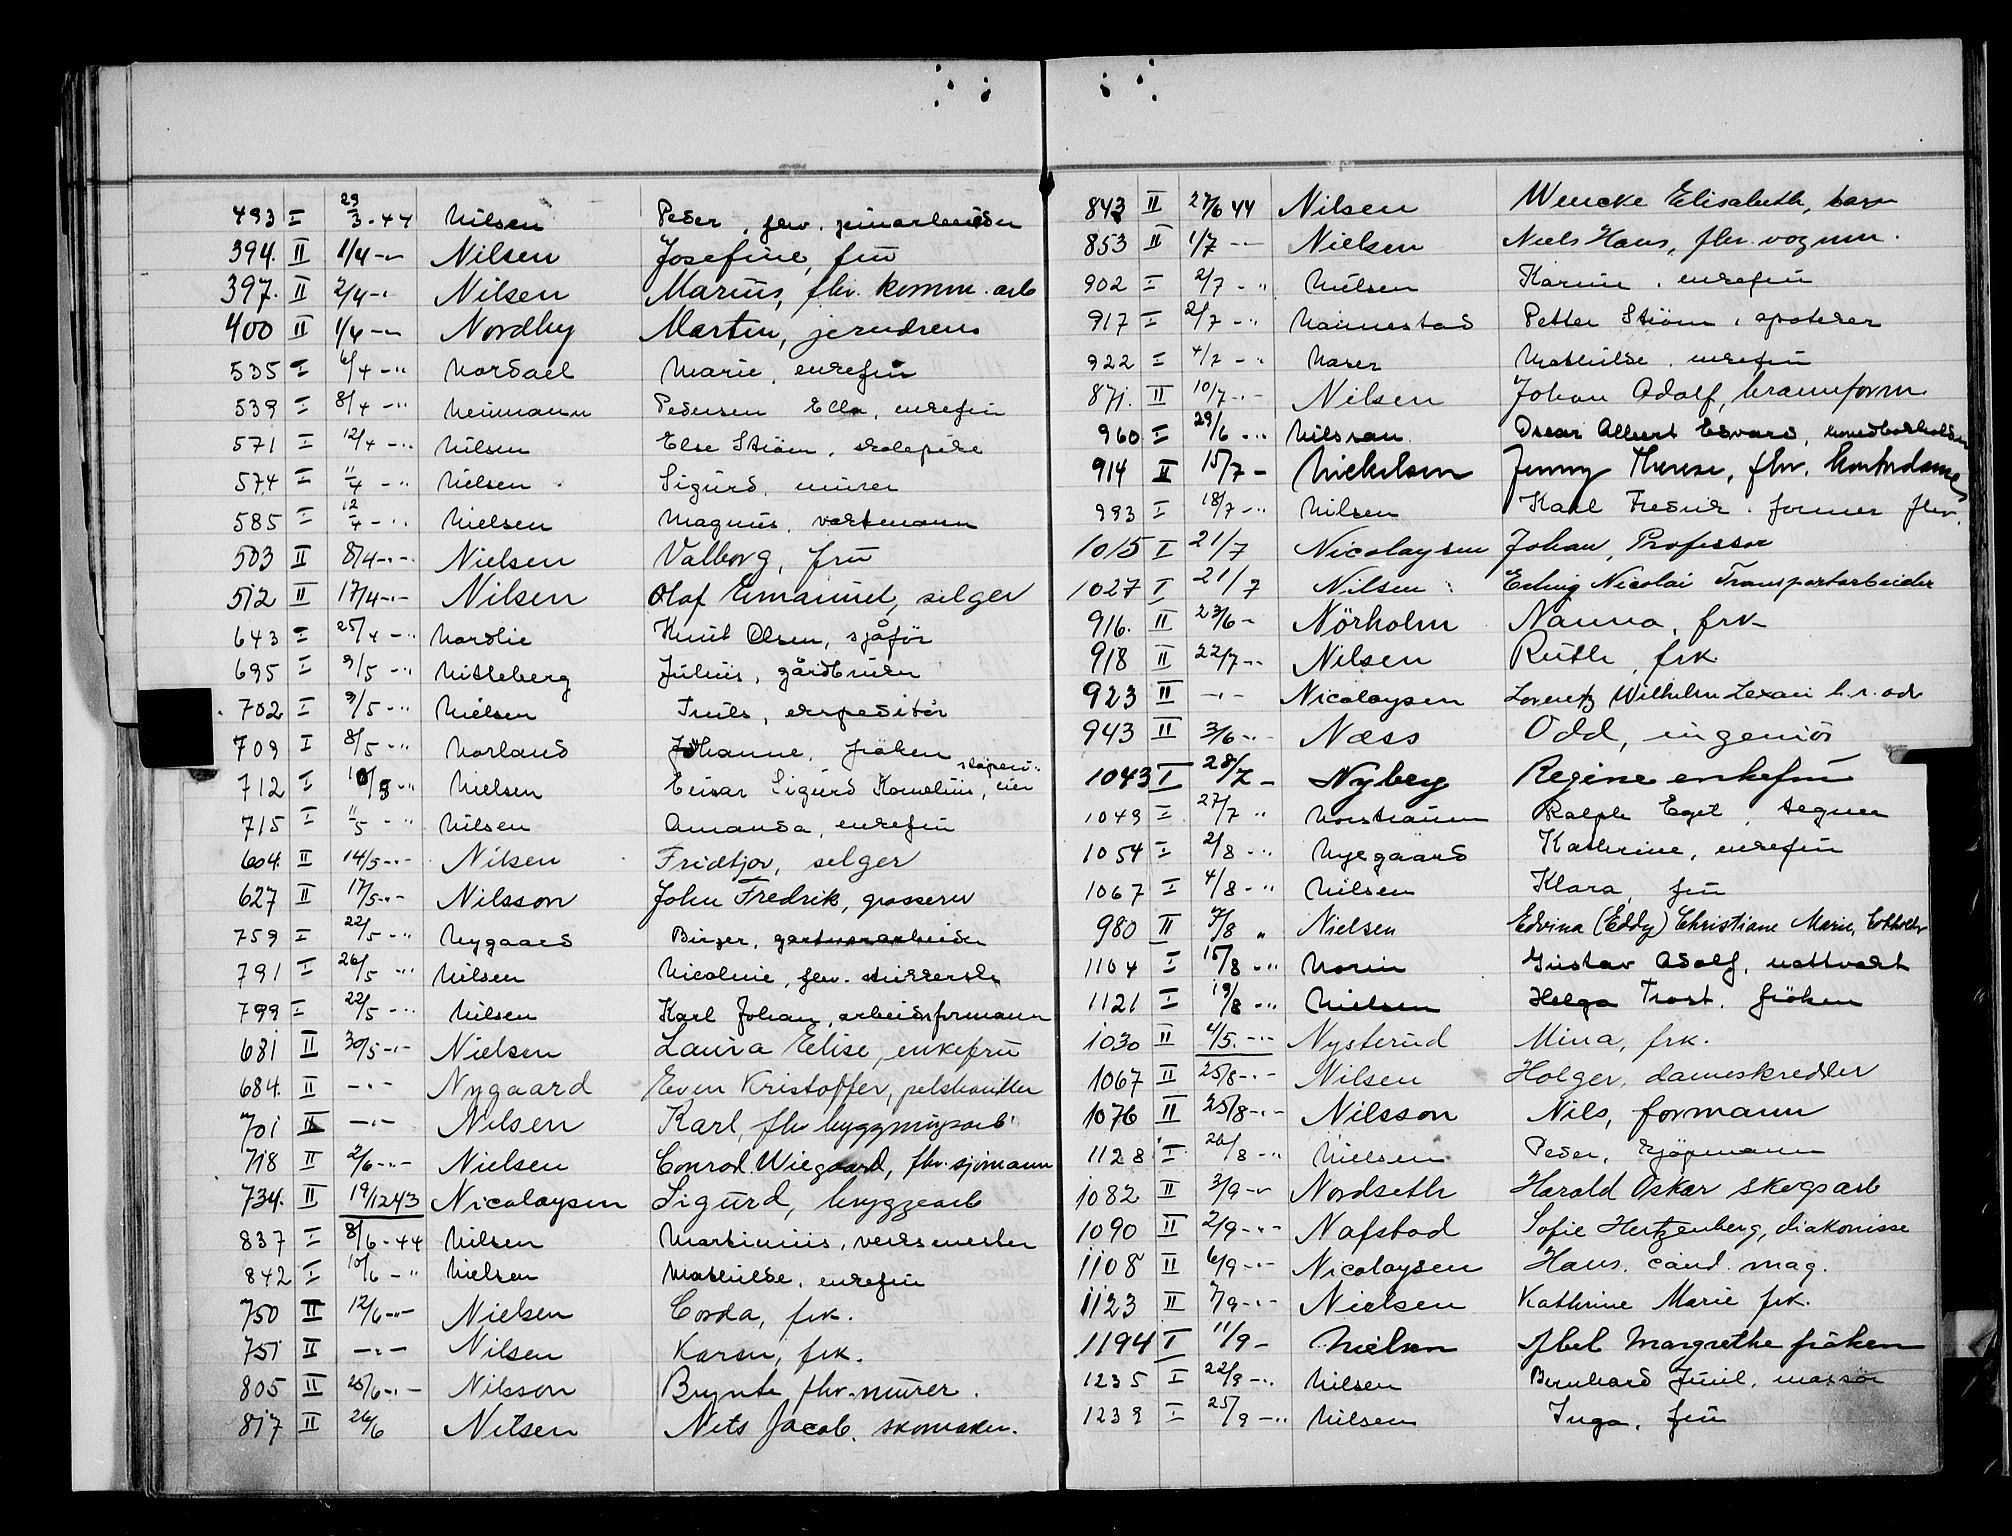 493 I 29/3-44 Nilsen Peder, fhv. jernarbeider
394. II 1/4 -"- Nilsen Josefine, fru
397. II 2/4 -"- Nilsen Marius, fhv. komm. arb
400 II 1/4 -"- Nordby Martin, jerndreier
535 I 6/4 -"- Nordael Marie, enkefru
539 I 8/4 -"- Neumann Pedersen Ella, enkefru
571 I 12/4 -"- Nilsen Else Ström, skolepike
574 I 11/4 -"- Nielsen Sigurd, murer
585 I 12/4 -"- Nielsen Magnus, vaktmann
503 II 8/4 -"- Nielsen Valborg, fru
512 II 17/4 -"- Nilsen Olaf Emanuel, selger
643 I 25/4 -"- Nordlie Knut Olsen, sjåför
695 I 9/5 -"- Nitteberg Julius, gårdbruker
702 I 9/5 -"- Nielsen Truls, ekspeditör
709 I 8/5 -"- Norland Johanne, fröken
712 I 10/5 -"- Nielsen Einar Sigurd Kornelius,
715 I 11/5 -"- Nilsen Amanda, enkefru
604. II 14/5 -"- Nilsen Fridtjov, selger
627 II 17/5 -"- Nilsson John Fredrik, grosserer
759 I 22/5 -"- Nygaard Birger, gartnerarbeider
791 I 26/5 -"- Nilsen Nicoline, fhv.
799 I 22/5 -"- Nilsen Karl Johan, arbeidsformann
681 II 30/5 -"- Nielsen Laura Elise, enkefru
684. II -"- Nygaard Even Kristoffer, pelshandler
701 II -"- Nilsen Karl, fhv bygningsarb
718 II 2/6 -"- Nielsen Conrad Wiegaard, fhv. sjömann
734. II 19/12 43 Nicolaysen Sigurd, bryggearb
837 I 8/6 - 44 Nilsen Martinius, verksmester
842 I 10/6 -"- Nielsen Mathilde, enkefru
750 II 12/6 -"- Nielsen Corda, frk.
751 II -"- Nilsen Karen, frk.
805 II 25/6 -"- Nilsson Brynte, fhv. murer.
817 II 26/6 Nilsen Nils Jacob, skomaker.
843 II 27/6 44 Nilsen Wencke Elisabeth, barn
853 II 1/7 -"- Nielsen Niels Hans, fhv. vognm.
902 I 2/7 -"- Nilsen Karine, enkefru
917 I 2/7 -"- Nannestad Petter Ström, apoteker
922 I 4/7 -"- Naser Mathilde, enkefru
871. II 10/7 -"- Nilsen Johan Adolf, brannform
960 I 29/6 -"- Nilsson Oscar Albert Edvard,
914 II 15/7 - Nickelsen Jenny Therese, fhv. kontordame
993 I 18/7 -"- Nilsen Karl Fredrik. former fhv.
1015 I 21/7 Nicolaysen Johan, Professor
1027 I 21/7 Nilsen Erling Nicolai Transportarbeider
916. II 23/6 - Nörholm Nanna, frk
918 II 22/7 -"- Nilsen Ruth, frk
923 II -"- Nicolaysen Lorentz Wilhelm Lexau h.r. adv
943 II 3/6 -"- Næss Odd, ingeniör
1043 I 28/7 - Nyberg Regine enkefru
1049 I 27/7 " Norstraum Ralph Egel, tegner
1054 I 2/8 -"- Nyegaard Kathrine, enkefru
1067 I 4/8 -"- Nilsen Klara, fru
980 II 7/8 " Nielsen Edvina (Eddy) Christiane Marie,
1104 I 15/8 -"- Norin Gustav Adolf, nattvakt
1121 I 19/8 -"- Nielsen Helga Trost, fröken
1030 II 4/5 -"- Nysterud Mina, frk.
1067 II 25/8 -"- Nilsen Holger, dameskredder
1076 II 25/8 -"- Nilsson Nils, formann
1128 I 26/8 -"- Nielsen Peder, kjöpmann
1082 II 3/9 -"- Nordseth Harald Oskar skogsarb
1090 II 2/9 -"- Nafstad Sofie Hertzenberg, diakonisse
1108 II 6/9 -"- Nicolaysen Hans, cand. mag.
1123 II 7/9 -"- Nielsen Kathrine Marie frk.
1194 I 11/9 - Nielsen Abel Margrethe fröken
1235 I 22/9 -"- Nilsen Bernhard Juul, massör
1239 I 25/9 -"- Nilsen Inga, fru